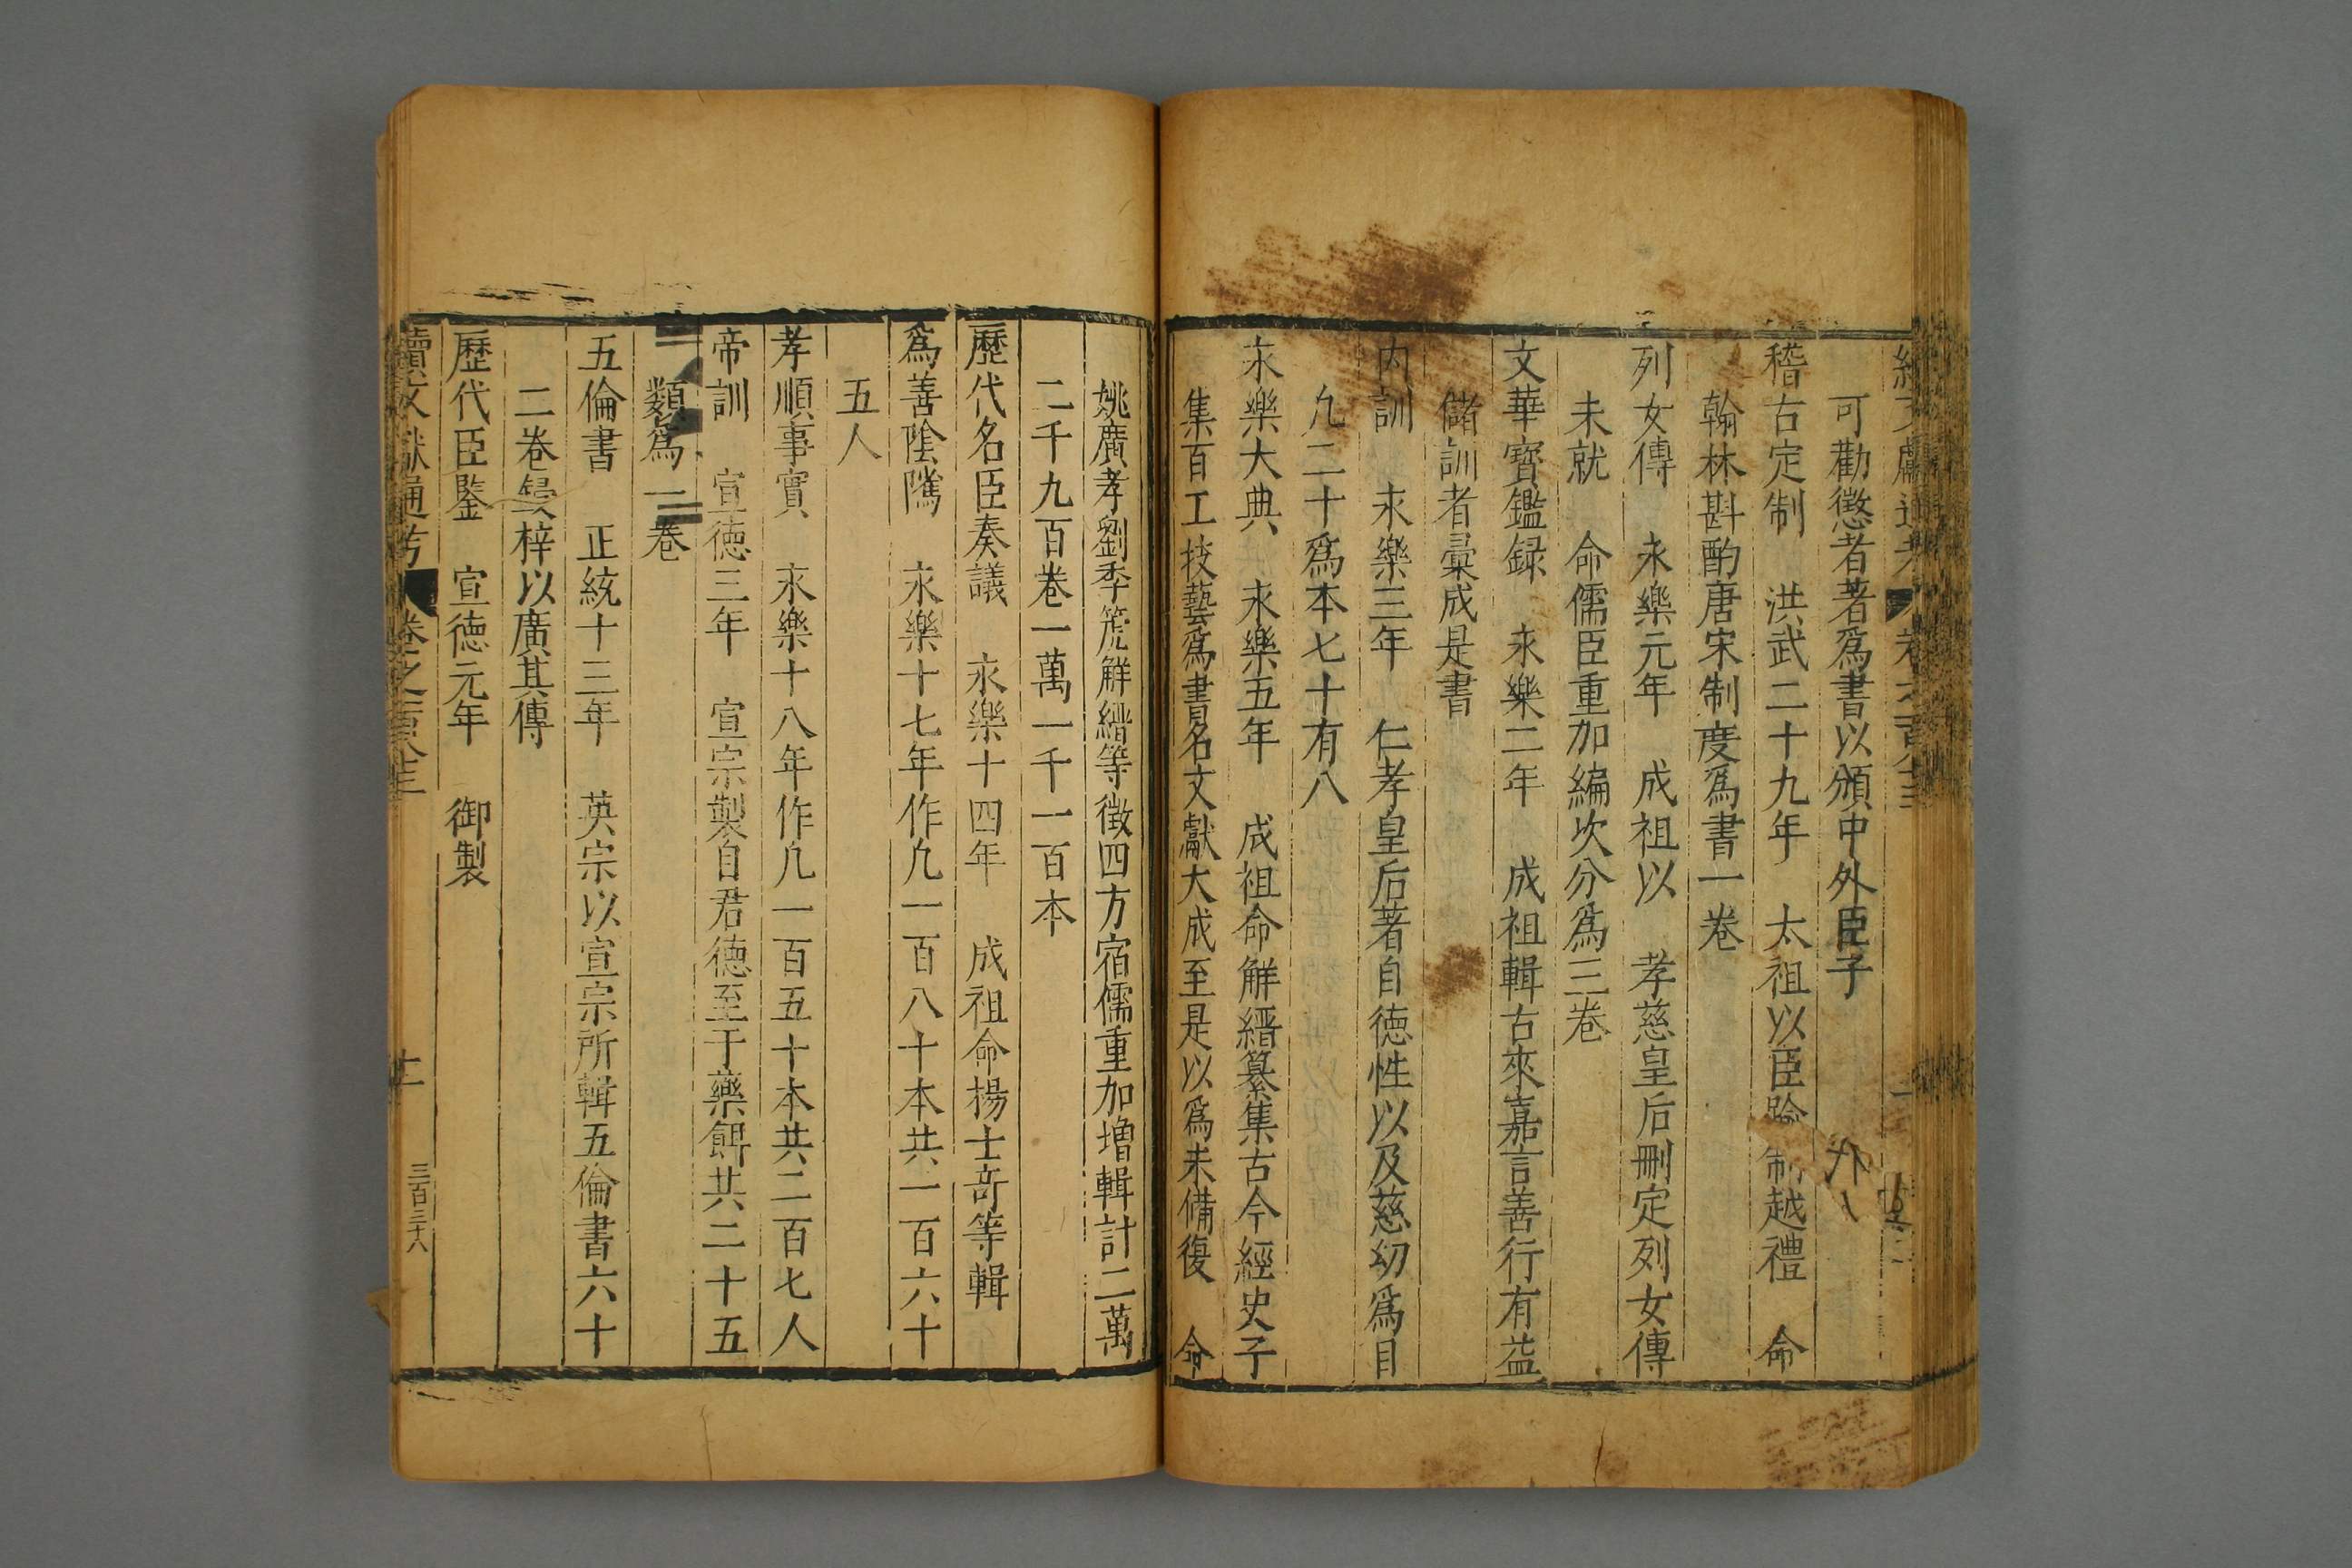 可勸懲者著爲書以頒中外臣子
稽古定制 洪武二十九年 太祖以臣踰制越禮 命
翰林斟酌唐宋制度爲書一卷
列女傳 永樂元年 成祖以 孝慈皇后刪定列女傳
未就 命儒臣重加編次分爲三卷
文華寶鑑録 永樂二年 成祖輯古來嘉言善行有益
儲訓者彙成是書
内訓 永樂三年 仁孝皇后著自德性以及慈幼爲目
凡二十爲本七十有八
永樂大典 永樂五年 成祖命解縉纂集古今經史子
集百工技藝爲書名文獻大成至是以爲未備復 命
姚廣孝劉季箎解縉等徵四方宿儒重加增輯計二萬
二千九百卷一萬一千一百本
歷代名臣奏議 永樂十四年 成祖命楊士竒等輯
爲善陰隲 永樂十七年作凡一百八十本共一百六十
五人
孝順事實 永樂十八年作凡一百五十本共二百七人
帝訓 宣德三年 宣宗製自君德至于藥餌共二十五
類爲 卷
五倫書 正統十三年 英宗以宣宗所輯五倫書六十
二卷鋟梓以廣其傳
歷代臣鑒 宣德元年 御製
續文獻通考 卷之百 十一 三百三十八